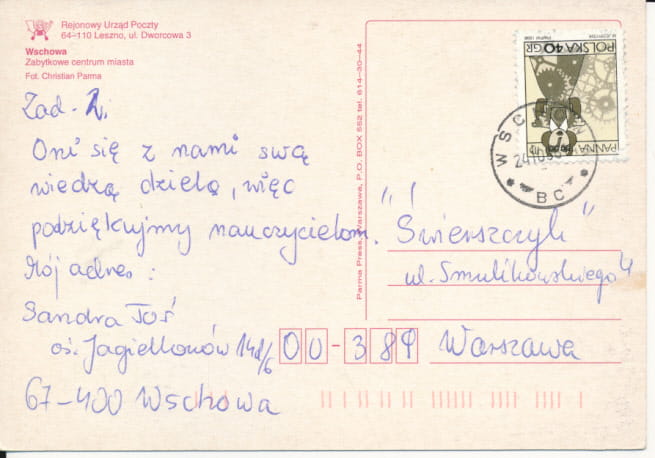 Rejonowy Urząd Poczty
64-110 Leszno, ul. Dworcowa 3
Wschowa
Zabytkowe centrum miasta
Fot. Christian Parma
Zad-2.
Oni się z nami swą
wiedzą dzielą, więc
podziękujmy nauczycielom.
Mój adres:
Sandra Toś
oś. Jagiellonów 14d/6
67-400 Wschowa
Parma Press, Warszawa, P.O. BOX 552 tel. 614-30-44
POLSKA 40 GR
PANNA
BC
"Świerszczyk"
ul. Smulikowskiego 4
00-389 Warszawa